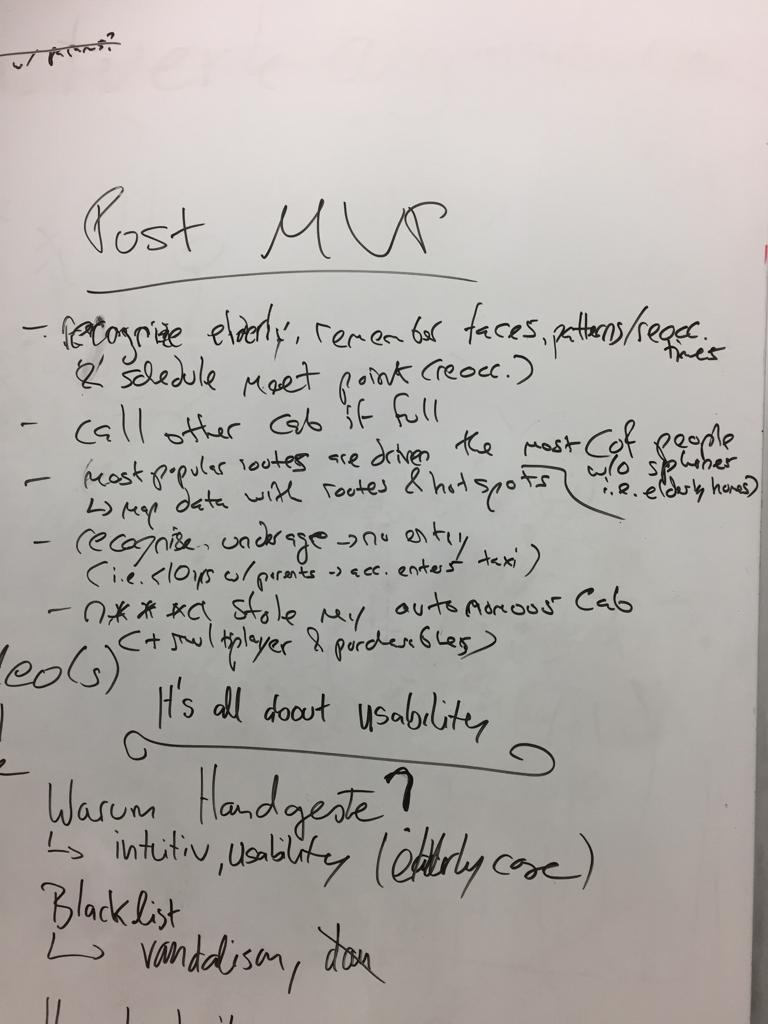 w/ params?
Post MVP
- recognize elderly, remember faces, patterns/reocc. times
& schedule meet point (reocc.)
- call other cab if full
- most popular routes are driven the most (of people w/o sphones i.e. elderly homes)
↳ map data with routes & hotspots
- recognise underage → no entry
(i.e. <10yrs w/ parents → acc. enters taxi)
- n***a stole my autonomous cab
(+ multiplayer & purchasables)
eo(s)
It's all about usability
Warum Handgeste?
↳ intuitiv, usability (elderly case)
Blacklist
↳ vandalism,